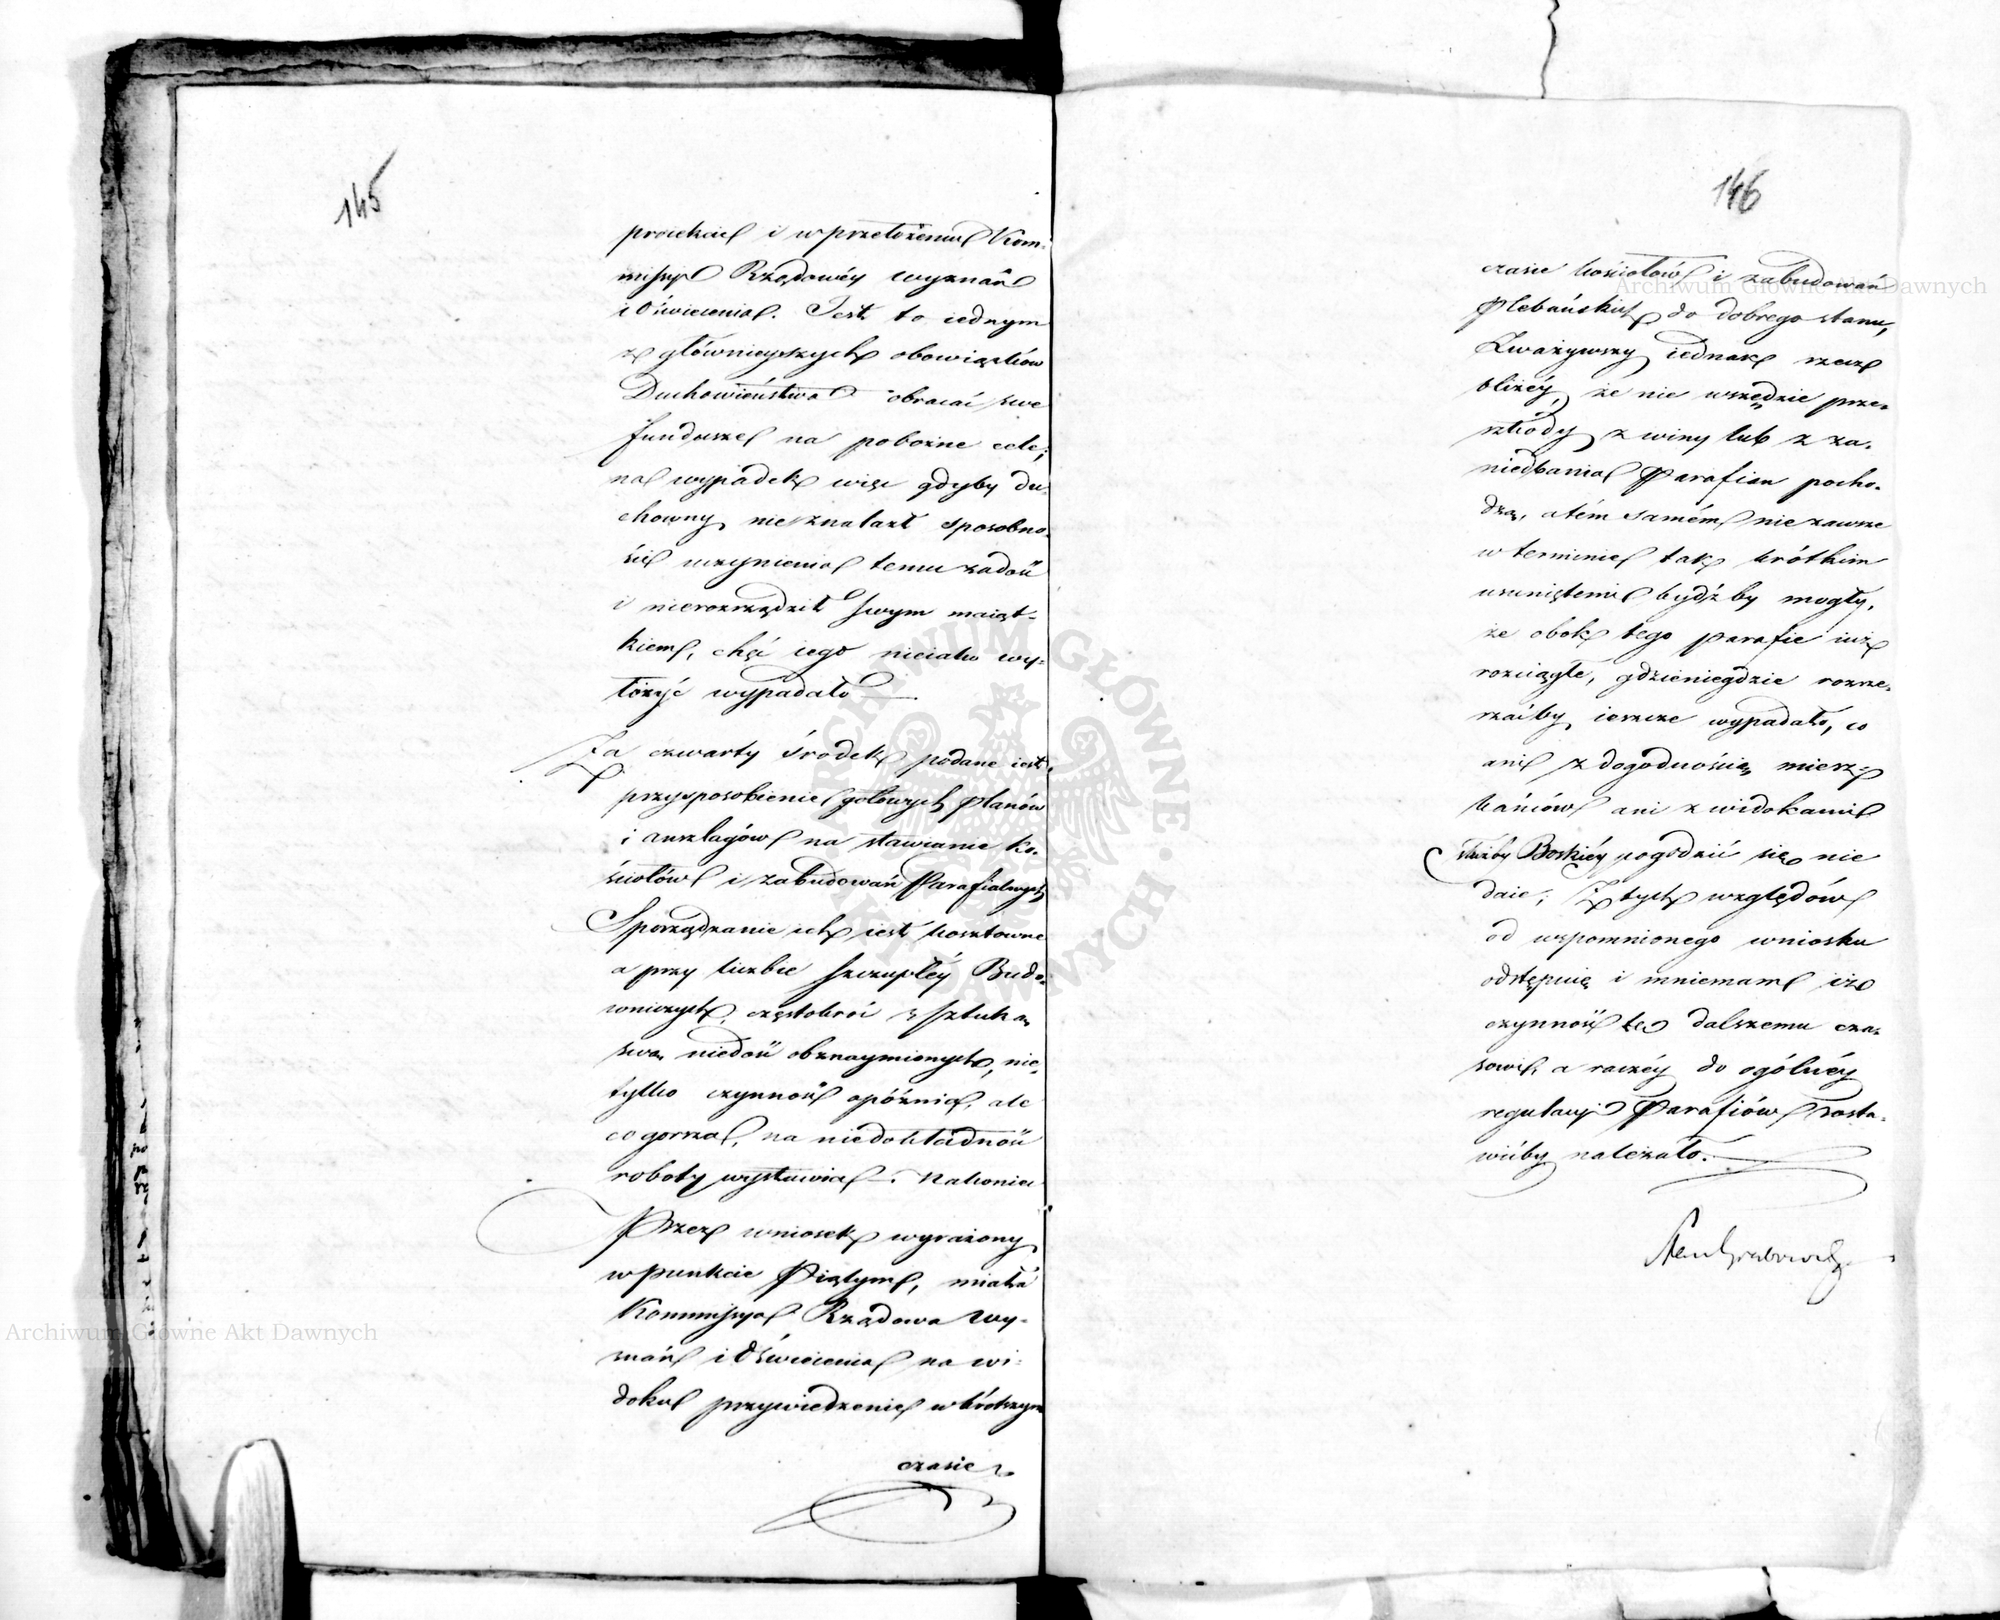 145
proiekcie i w przełożeniu Kom-
missyi Rządowéy wyznań
i Oświecenia. Jest to iednym
z głównieyszych obowiązków
Duchowieństwa obracać swe
fundusze na pobożne cele;
na wypadek więc gdyby du-
chowny nieznalazł sposobno-
ści uczynienia temu zadość
i nierozrządził swym maiąt-
kiem, chęć iego nieiako wy-
łożyć wypadało.
Za czwarty środek podane iest
przysposobienie gotowych planów
i anszlagów na stawianie ko-
ściołów i zabudowań Parafialnych
Sporządzanie ich iest kosztowne
a przy liczbie szczupłéy Budo-
wniczych, częstokroć z sztuką
swą niedość obznaymionych, nie
tylko czynność opóźnia, ale
co gorsza, na niedokładność
roboty wystawia. Nakoniec
Przez wniosek wyrażony
w punkcie Piątym, miała
Kommissya Rządowa Wy-
znań i Oświecenia na wi-
doku przywiedzenie w krótszym
czasie
146
czasie kościołów i zabudowań
Plebańskich do dobrego stanu,
Zważywszy iednak rzecz
bliżéy, że nie wszędzie prze-
szkody z winy lub z za-
niedbania Parafian pocho-
dzą, atém samém nie zawsze
w terminie tak krótkim
usuniętemi bydź by mogły,
że obok tego parafie iuż
rozciągłe, gdzieniegdzie rozsze-
rzaćby ieszcze wypadało, co
ani z dogodnością miesz-
kańców ani z widokami
służby Boskiéy pogodzić się nie
daie; Z tych względów
od wspomnionego wniosku
odstępuię i mniemam iż
czynność tę dalszemu cza-
sowi, a raczéy do ogólnéy
regulacyi Parafiów zosta-
wićby należało.
Stan Grabowski
Archiwum Główne Akt Dawnych
Archiwum Główne Akt Dawnych
ARCHIWUM GŁÓWNE AKT DAWNYCH